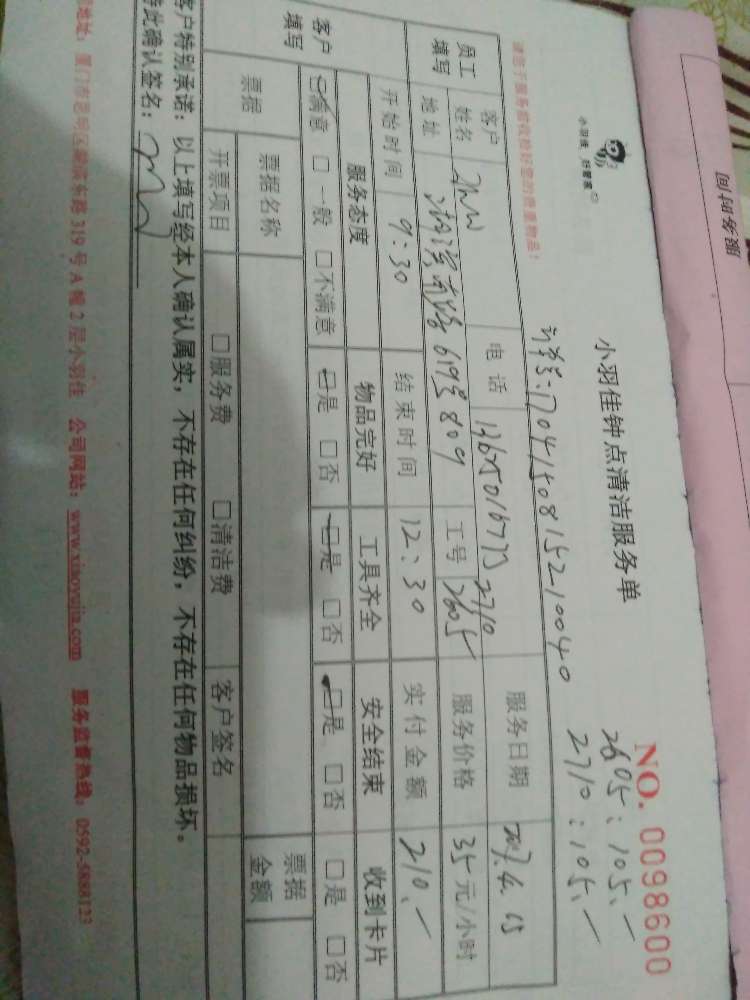 服务时间
小羽佳，好管家
小羽佳钟点清洁服务单
NO. 0098600
2605：105.—
2710：105.—
请您于服务前收捡好您的贵重物品！
员工填写
客户姓名
电话
2710
服务日期
2017.4.15
地址
619号809
工号
2605
服务价格
35元/小时
开始时间
9:30
结束时间
12:30
实付金额
210.—
客户填写
服务态度
物品完好
工具齐全
安全结束
收到卡片
□满意 □一般 □不满意
□是 □否
□是 □否
□是 □否
□是 □否
票据
票据名称
票据金额
开票项目
□服务费 □清洁费
客户签名
客户特别承诺：以上填写经本人确认属实，不存在任何纠纷，不存在任何物品损坏。
特此确认签名：
319号A幢2层小羽佳 公司网站：www.xiaoyujia.com 服务监督热线：0592-5888123